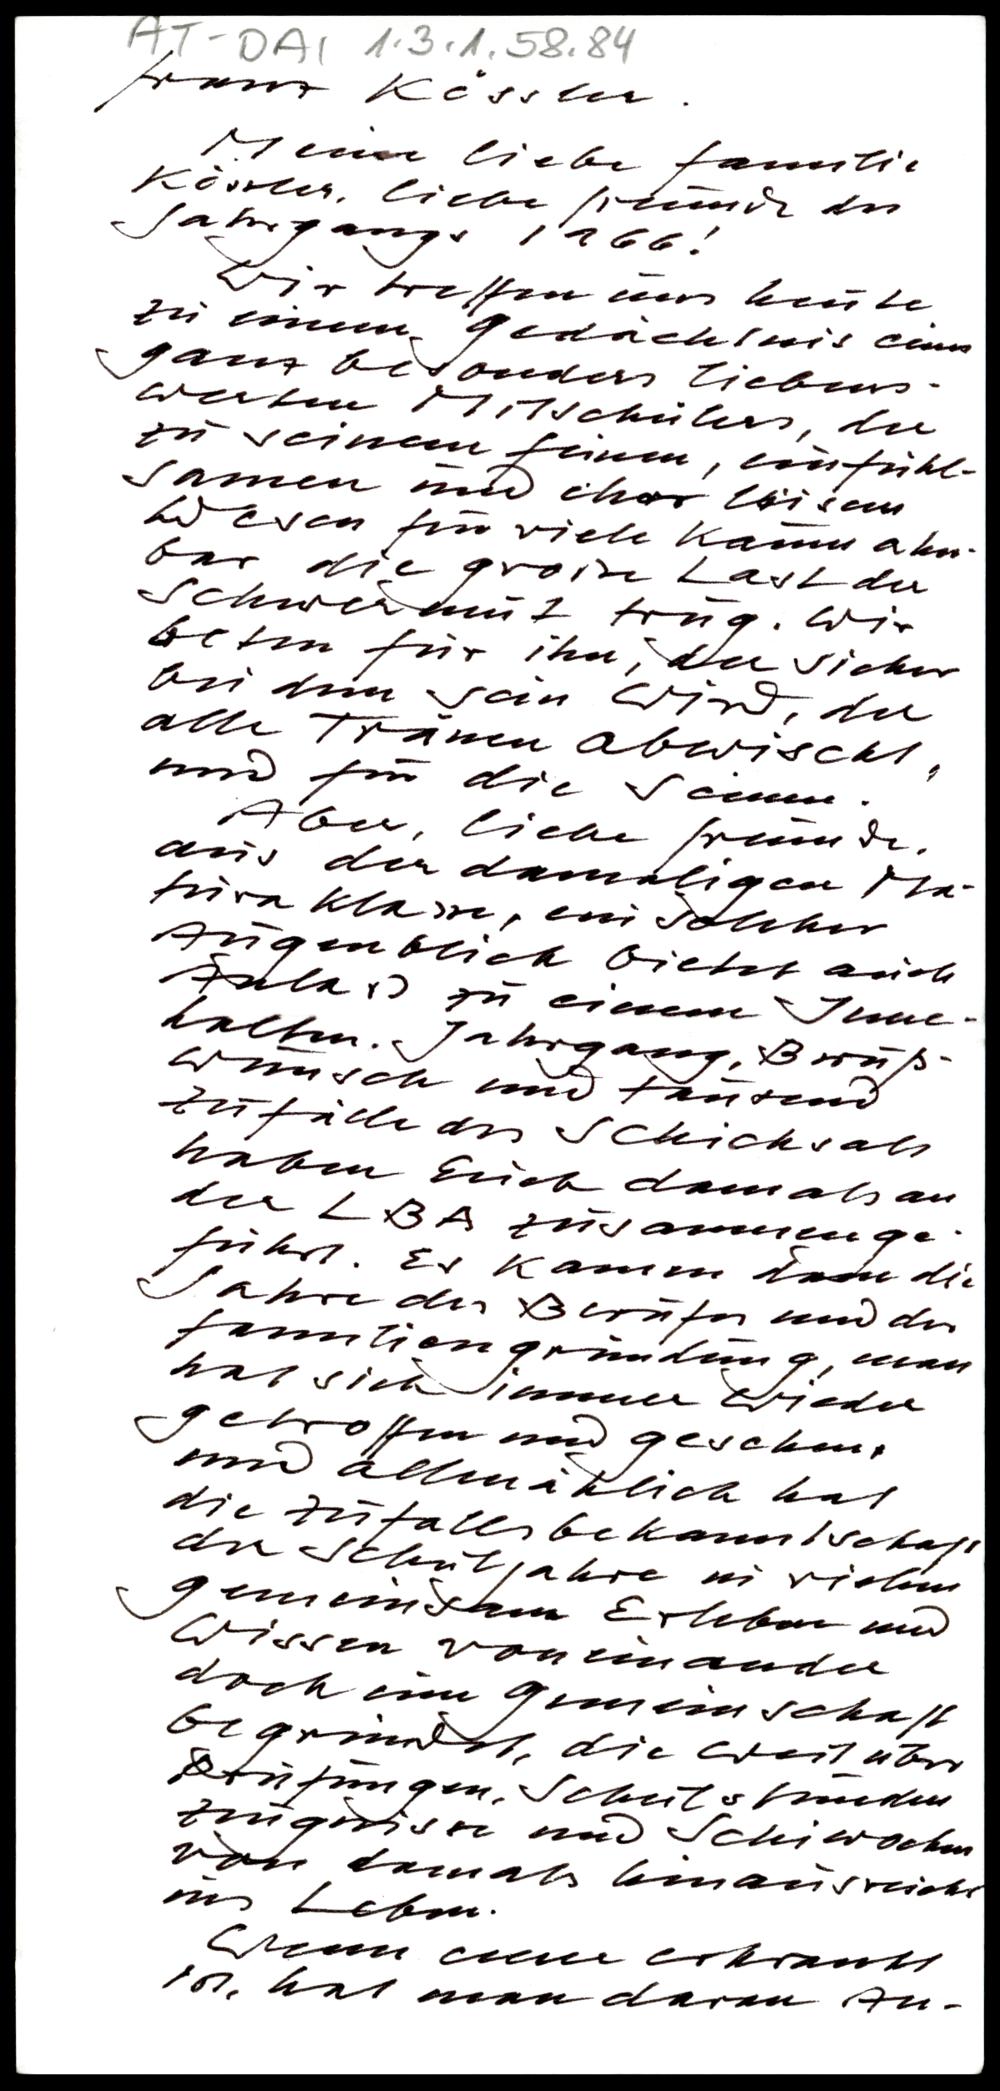 AT-DAI 1.3.1.58.84
Franz Kössler.
Meine liebe Familie
Kössler, liebe Freunde des
Jahrgangs 1966!
Wir treffen uns heute
zu einem Gedächtnis eines
ganz besonders liebens-
werten Mitschülers, der
zu seinem feinen, einfühl-
samen und eher leisen
Wesen für viele kaum ahn-
bar die grosse Last der
Schwermut trug. Wir
beten für ihn, der sicher
bei dem sein wird, der
alle Tränen abwischt,
und für die Seinen.
Aber, liebe Freunde,
aus der damaligen Ma-
turaklasse, ein solcher
Augenblick bietet auch
Anlass zu einem Inne-
halten. Jahrgang, Berufs-
wunsch und tausend
Zufälle des Schicksals
haben Euch damals an
der LBA zusammenge-
führt. Es kamen dann die
Jahre des Berufes und der
Familiengründung, man
hat sich immer wieder
getroffen und gesehen,
und allmählich hat
die Zufallsbekanntschaft
der Schuljahre in vielem
gemeinsam Erleben und
Wissen voneinander
doch eine Gemeinschaft
begründet, die weit über
Prüfungen, Schulstunden
Zeugnisse und Schiwochen
von damals hinausreicht
ins Leben.
Wenn einer erkrankt
ist, hat man daran An-